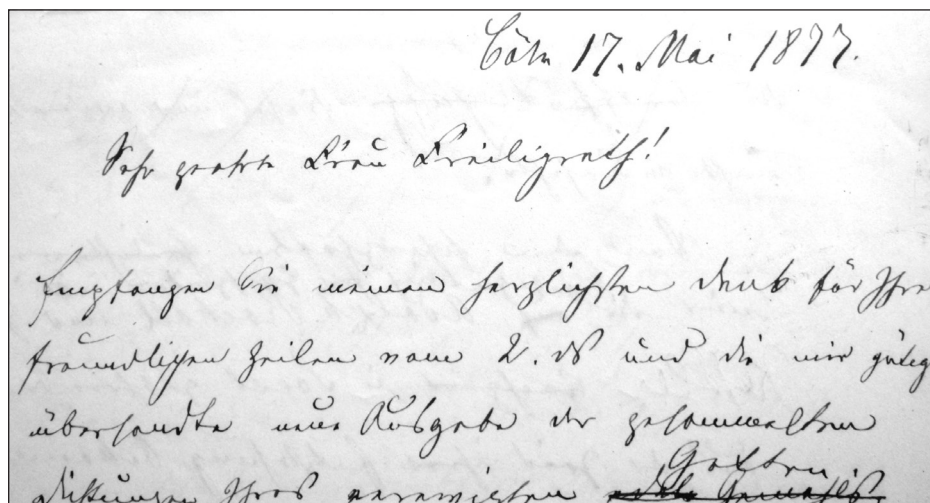 Cöln 17. Mai 1877.
Sehr geehrte Frau Freiligrath!
Empfangen Sie meinen herzlichsten Dank für Ihre
freundlichen Zeilen vom 2. ds und die mir gütigs
übersandte neue Ausgabe der gesammelten
Gatten
Dichtungen Ihres verewigten